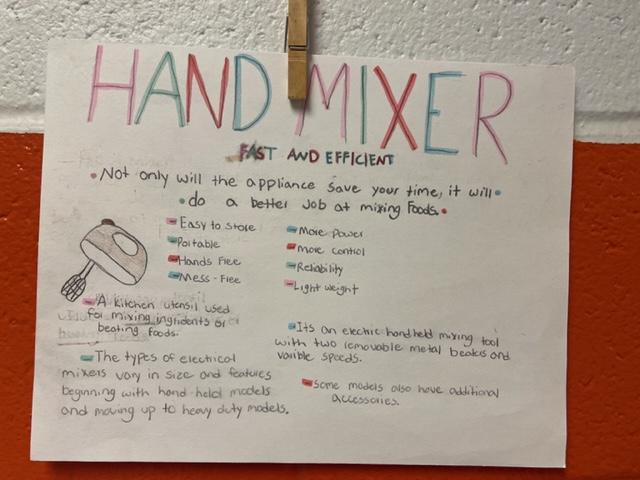 HAND MIXER
FAST AND EFFICIENT
Not only will the appliance save your time, it will
do a better job at mixing foods.
Easy to store
Portable
Hands Free
Mess-Free
More Power
More control
Reliability
Light weight
A kitchen utensil used
for mixing ingridents or
beating foods.
The types of electrical
mixers vary in size and features
beginning with hand-held models
and moving up to heavy duty models.
Its an electric handheld mixing tool
with two removable metal beaters and
varible speeds.
Some models also have additional
accessories.